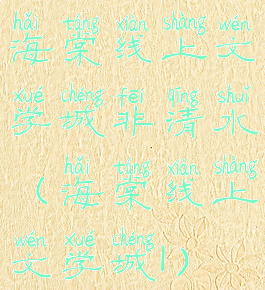 hǎi táng xiàn shàng wén
海棠线上文
xué chéng fēi qīng shuǐ
学城非清水
hǎi táng xiàn shàng
(海棠线上
wén xué chéng
文学城1)